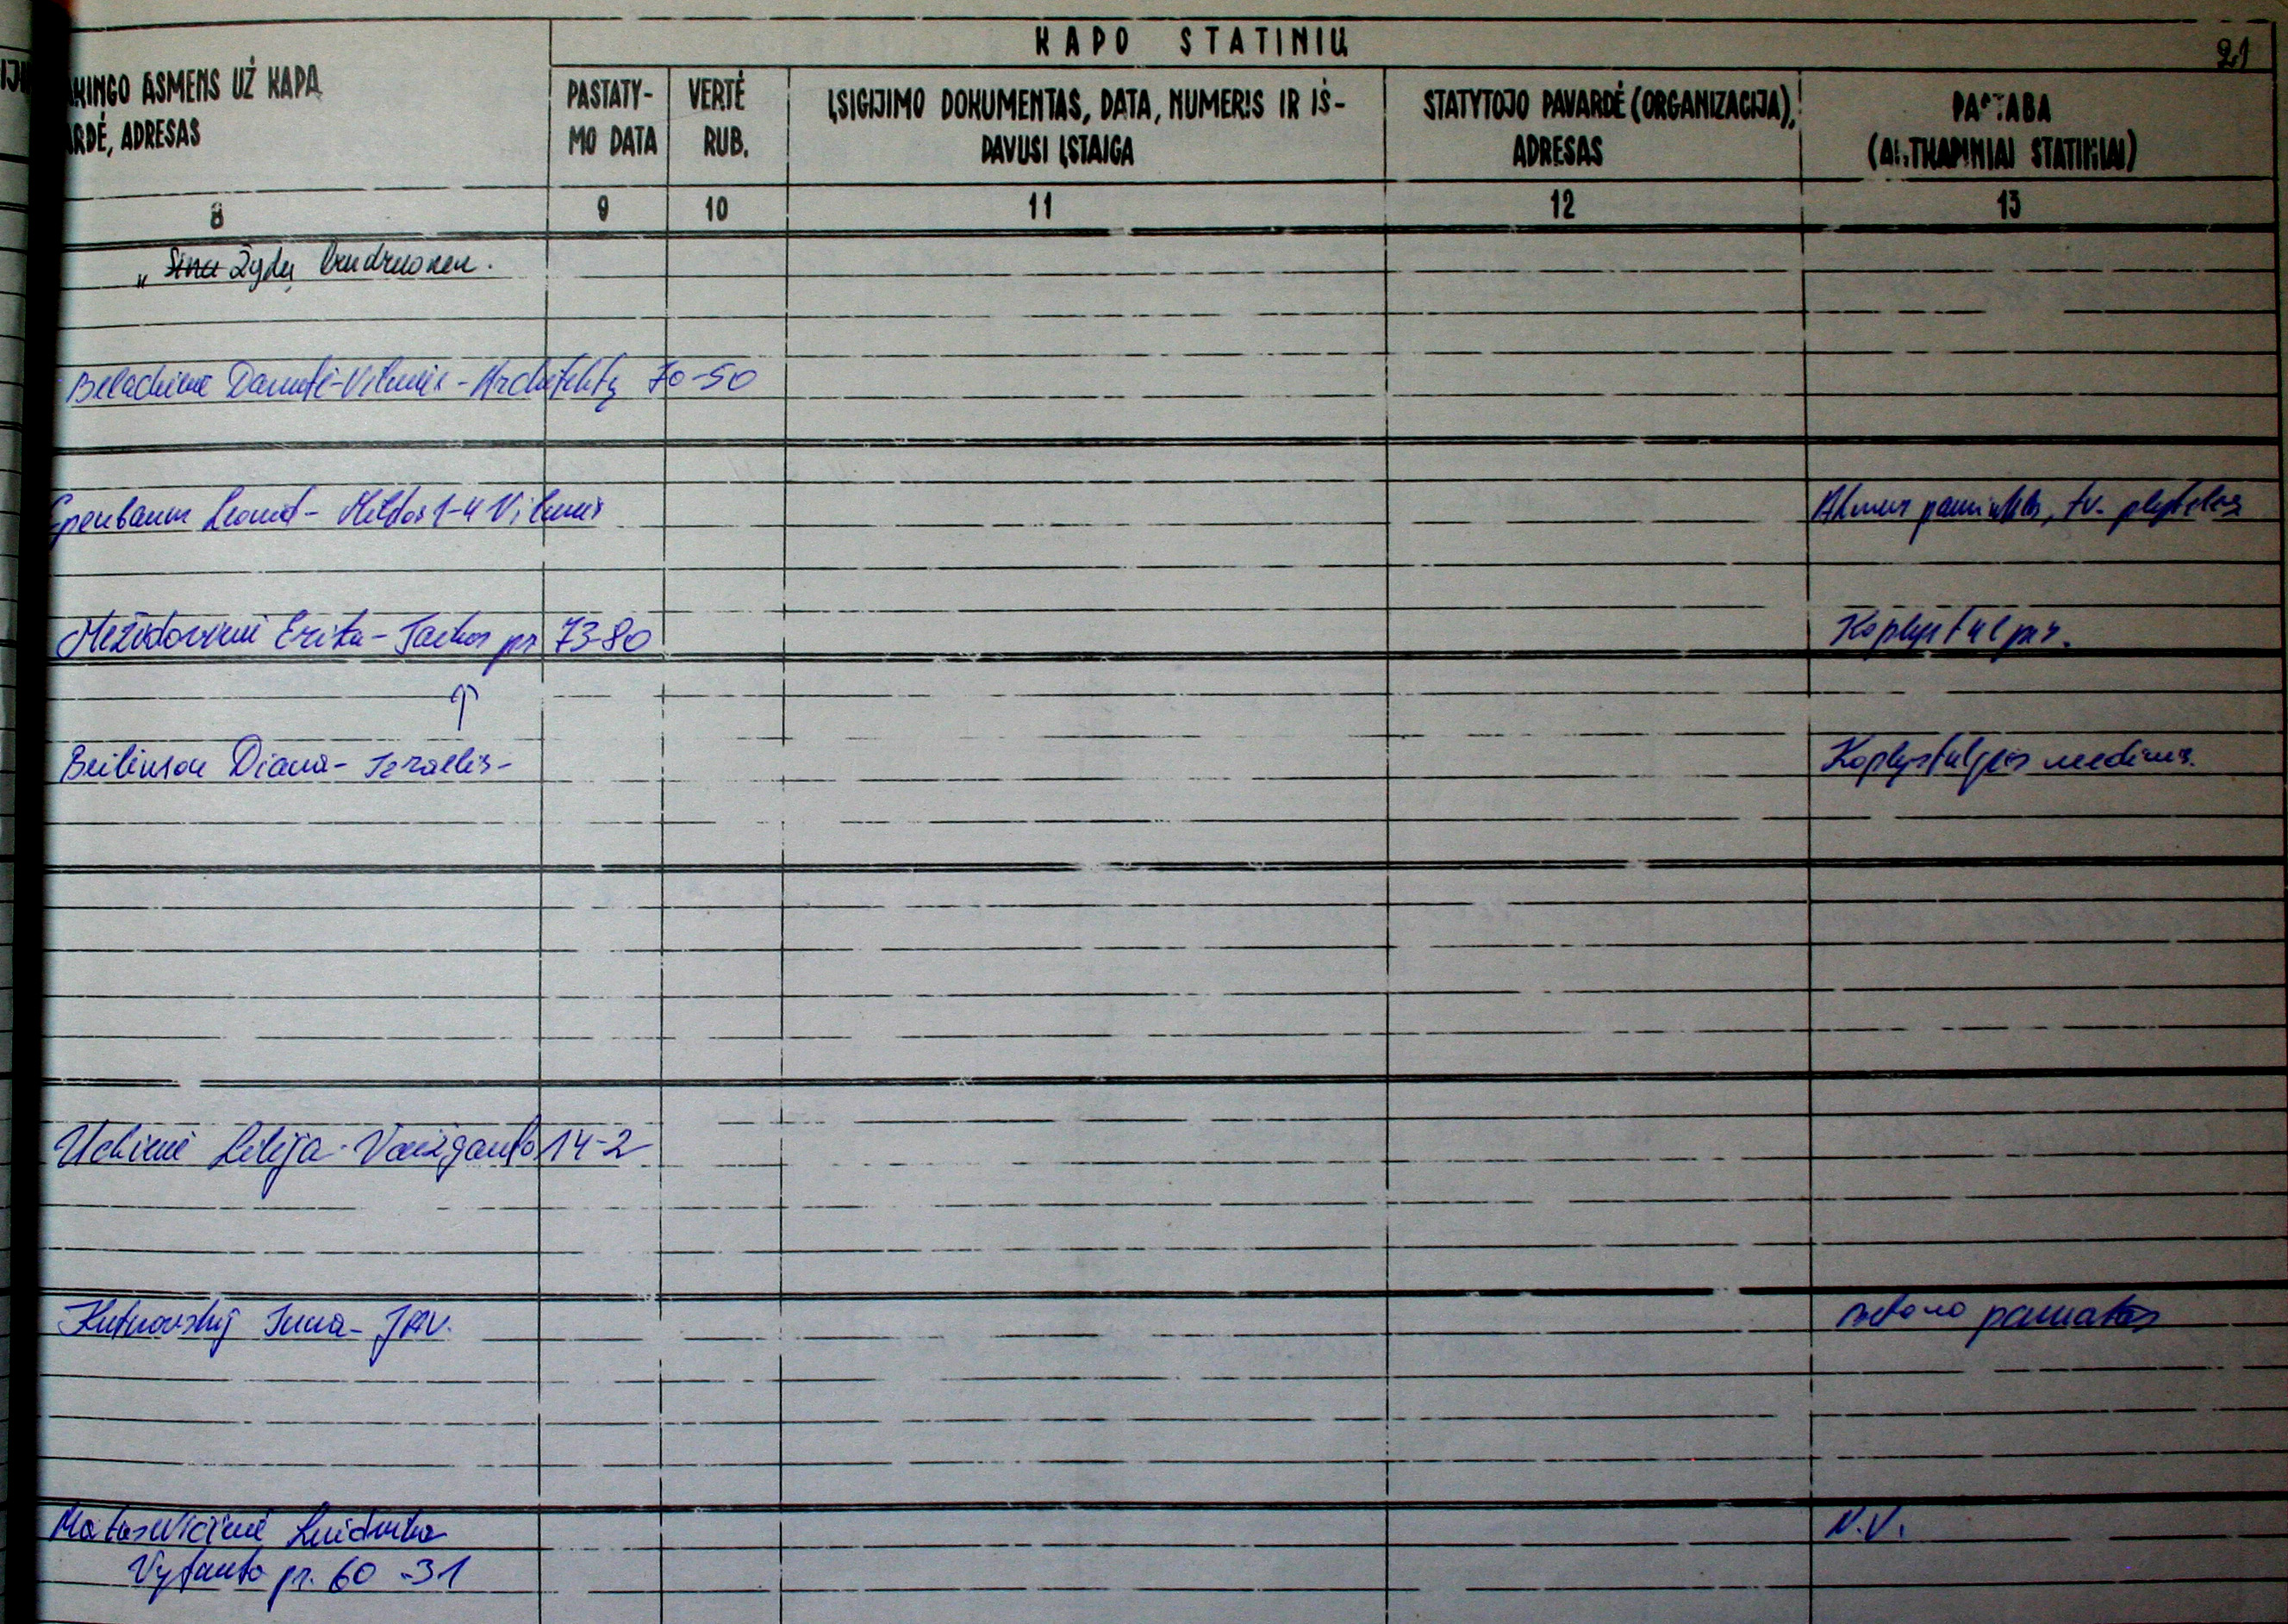 KAPO STATINIŲ
21
KINGO ASMENS UŽ KAPĄ
ARDĖ, ADRESAS
PASTATY-
MO DATA
VERTĖ
RUB.
ĮSIGIJIMO DOKUMENTAS, DATA, NUMERIS IR IŠ-
DAVUSI ĮSTAIGA
STATYTOJO PAVARDĖ (ORGANIZACIJA),
ADRESAS
PASTABA
(ANTKAPINIAI STATINIAI)
8 9 10 11 12 13
„ Žydų bendruomen.
Danutė - Vilnius - Architektų 70-50
Leonid - Mildos 1-4 Vilnius
Akmens paminklas, tv. plytelės
Erika - Taikos pr 73-80
Koplytstulpis.
Beilinson Diana - Izraelis -
Koplytstulpis medinis.
Uckienė Lilija - Vaižganto 14-2
Kutnovskij Inna - JAV.
betono pamatas
Matusevičienė Liudvika
Vytauto pr. 60 - 31
N.V.